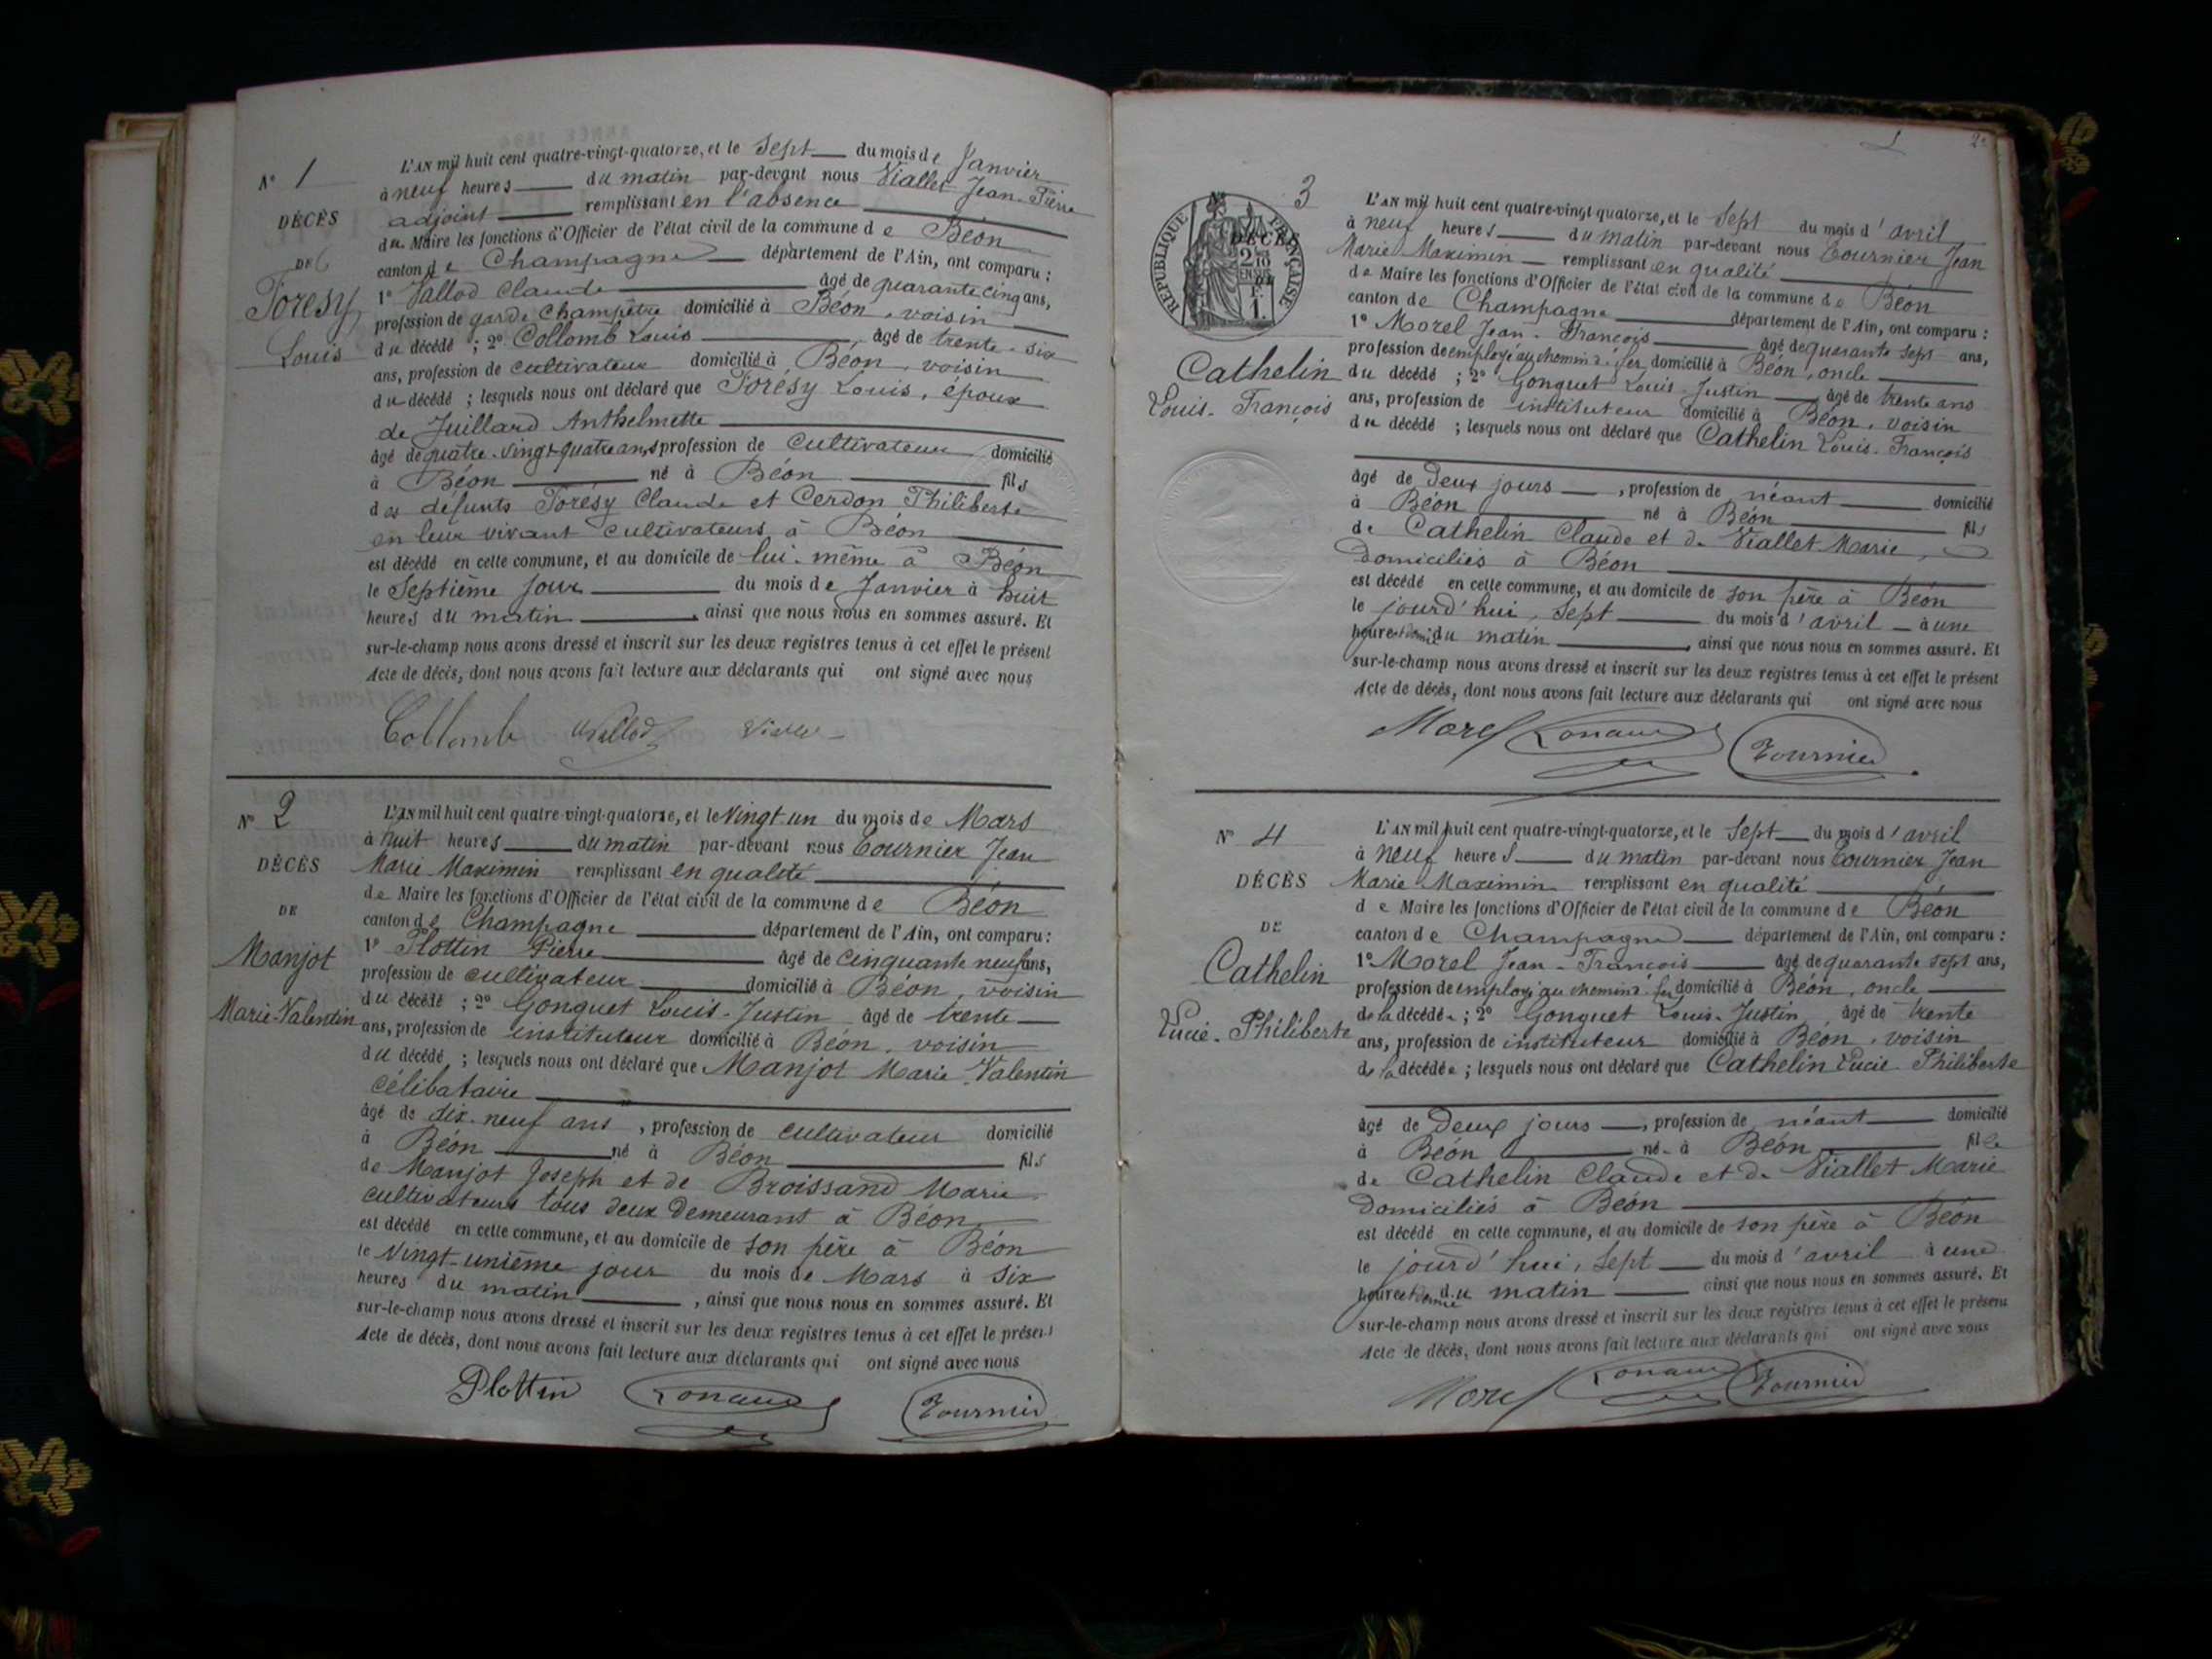 N° 1
DÉCÈS
DE
Forésy
Louis
L'AN mil huit cent quatre-vingt-quatorze, et le Sept du mois de Janvier
à neuf heures du matin par-devant nous Viallet Jean-Pierre
adjoint remplissant en l'absence
du Maire les fonctions d'Officier de l'état civil de la commune de Béon
canton de Champagne département de l'Ain, ont comparu :
1° Vallod Claude âgé de quarante cinq ans,
profession de garde champêtre domicilié à Béon, voisin
du décédé ; 2° Collomb Louis âgé de trente-six
ans, profession de cultivateur domicilié à Béon, voisin
du décédé ; lesquels nous ont déclaré que Forésy Louis, époux
de Juillard Anthelmette
âgé de quatre-vingt-quatre ans, profession de cultivateur domicilié
à Béon né à Béon fils
des défunts Forésy Claude et Cerdon Philiberte
en leur vivant cultivateurs à Béon
est décédé en cette commune, et au domicile de lui-même à Béon
le Septième jour du mois de Janvier à huit
heures du matin, ainsi que nous nous en sommes assuré. Et
sur-le-champ nous avons dressé et inscrit sur les deux registres tenus à cet effet le présent
Acte de décès, dont nous avons fait lecture aux déclarants qui ont signé avec nous
Collomb Vallod
N° 2
DÉCÈS
DE
Manjot
Marie-Valentin
L'AN mil huit cent quatre-vingt-quatorze, et le Vingt-un du mois de Mars
à huit heures du matin par-devant nous Tournier Jean
Marie Maximin remplissant en qualité
de Maire les fonctions d'Officier de l'état civil de la commune de Béon
canton de Champagne département de l'Ain, ont comparu :
1° Plottin Pierre âgé de cinquante neuf ans,
profession de cultivateur domicilié à Béon, voisin
du décédé ; 2° Gonguet Louis-Justin âgé de trente
ans, profession de instituteur domicilié à Béon, voisin
du décédé ; lesquels nous ont déclaré que Manjot Marie Valentin
célibataire
âgé de dix-neuf ans, profession de cultivateur domicilié
à Béon né à Béon fils
de Manjot Joseph et de Broissand Marie
cultivateurs tous deux demeurant à Béon
est décédé en cette commune, et au domicile de son père à Béon
le Vingt-unième jour du mois de Mars à six
heures du matin, ainsi que nous nous en sommes assuré. Et
sur-le-champ nous avons dressé et inscrit sur les deux registres tenus à cet effet le présent
Acte de décès, dont nous avons fait lecture aux déclarants qui ont signé avec nous
Plottin Tournier
2
3
RÉPUBLIQUE FRANÇAISE
DÉCÈS
Cathelin
Louis-François
L'AN mil huit cent quatre-vingt quatorze, et le Sept du mois d'avril
à neuf heures du matin par-devant nous Tournier Jean
Marie Maximin remplissant en qualité
de Maire les fonctions d'Officier de l'état civil de la commune de Béon
canton de Champagne département de l'Ain, ont comparu :
1° Morel Jean-François âgé de quarante sept ans,
profession de employé au chemin d. fer domicilié à Béon, oncle
du décédé ; 2° Gonguet Louis Justin âgé de trente ans
ans, profession de instituteur domicilié à Béon, voisin
du décédé ; lesquels nous ont déclaré que Cathelin Louis-François
âgé de deux jours, profession de néant domicilié
à Béon né à Béon fils
de Cathelin Claude et de Viallet Marie,
domiciliés à Béon
est décédé en cette commune, et au domicile de son père à Béon
le jourd'hui, sept du mois d'avril à une
heure et demie du matin, ainsi que nous nous en sommes assuré. Et
sur-le-champ nous avons dressé et inscrit sur les deux registres tenus à cet effet le présent
Acte de décès, dont nous avons fait lecture aux déclarants qui ont signé avec nous
Morel Tournier
N° 4
DÉCÈS
DE
Cathelin
Lucie-Philiberte
L'AN mil huit cent quatre-vingt-quatorze, et le Sept du mois d'avril
à neuf heures du matin par-devant nous Tournier Jean
Marie Maximin remplissant en qualité
de Maire les fonctions d'Officier de l'état civil de la commune de Béon
canton de Champagne département de l'Ain, ont comparu :
1° Morel Jean-François âgé de quarante sept ans,
profession de employé au chemin d. fer domicilié à Béon, oncle
de la décédée ; 2° Gonguet Louis-Justin âgé de trente
ans, profession de instituteur domicilié à Béon, voisin
de la décédée ; lesquels nous ont déclaré que Cathelin Lucie Philiberte
âgé de deux jours, profession de néant domicilié
à Béon né à Béon fille
de Cathelin Claude et de Viallet Marie
domiciliés à Béon
est décédé en cette commune, et au domicile de son père à Béon
le jourd'hui, sept du mois d'avril à une
heure et demie du matin ainsi que nous nous en sommes assuré. Et
sur-le-champ nous avons dressé et inscrit sur les deux registres tenus à cet effet le présent
Acte de décès, dont nous avons fait lecture aux déclarants qui ont signé avec nous
Morel Tournier